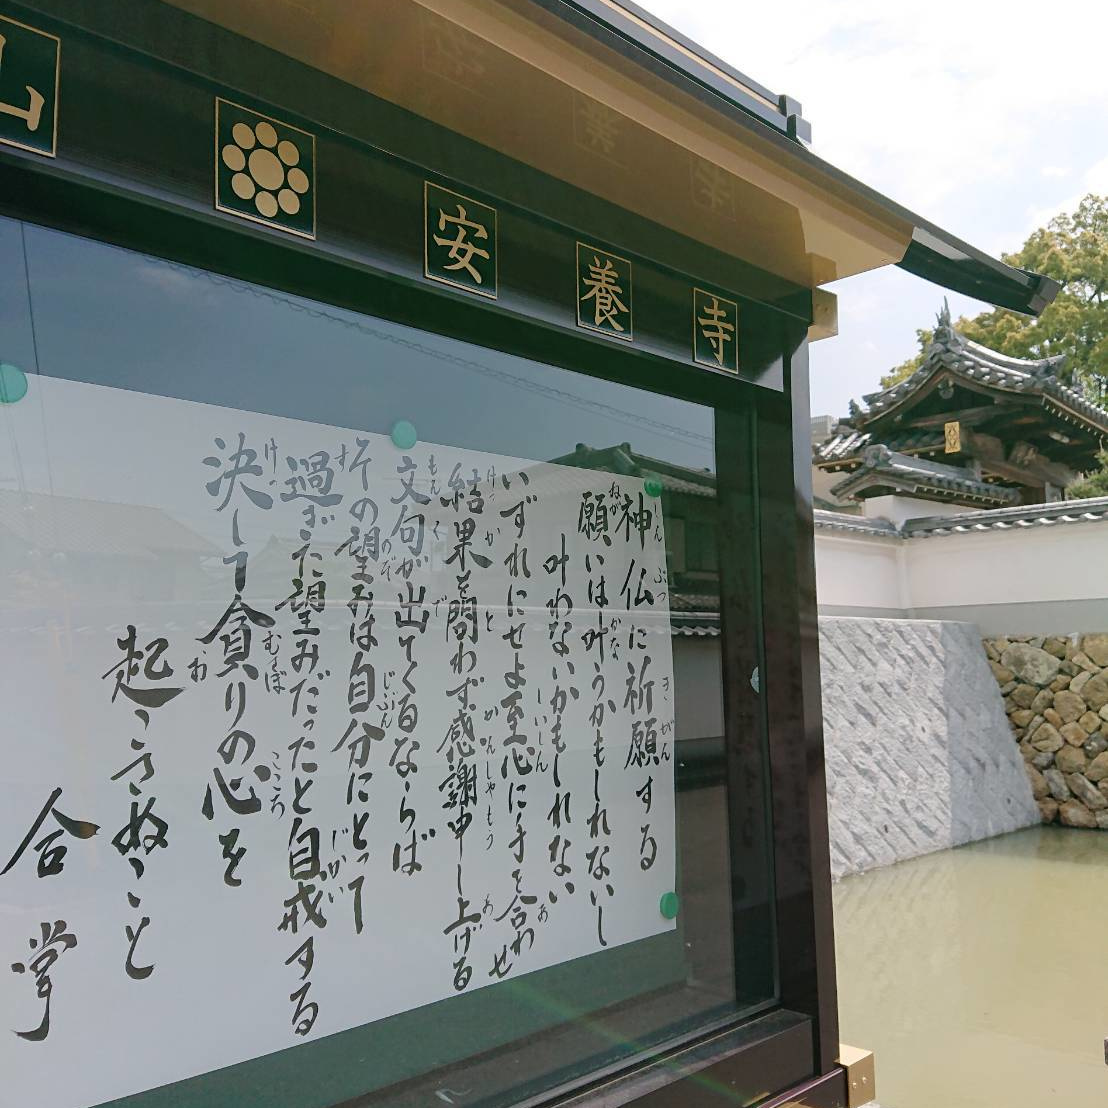 山 安養寺
神仏に祈願する
願いは叶うかもしれないし
叶わないかもしれない
いずれにせよ至心に手を合わせ
結果を問わず感謝申し上げる
文句が出てくるならば
その望みは自分にとって
過ぎた望みだったと自戒する
決して貪りの心を
起こさぬこと
合掌